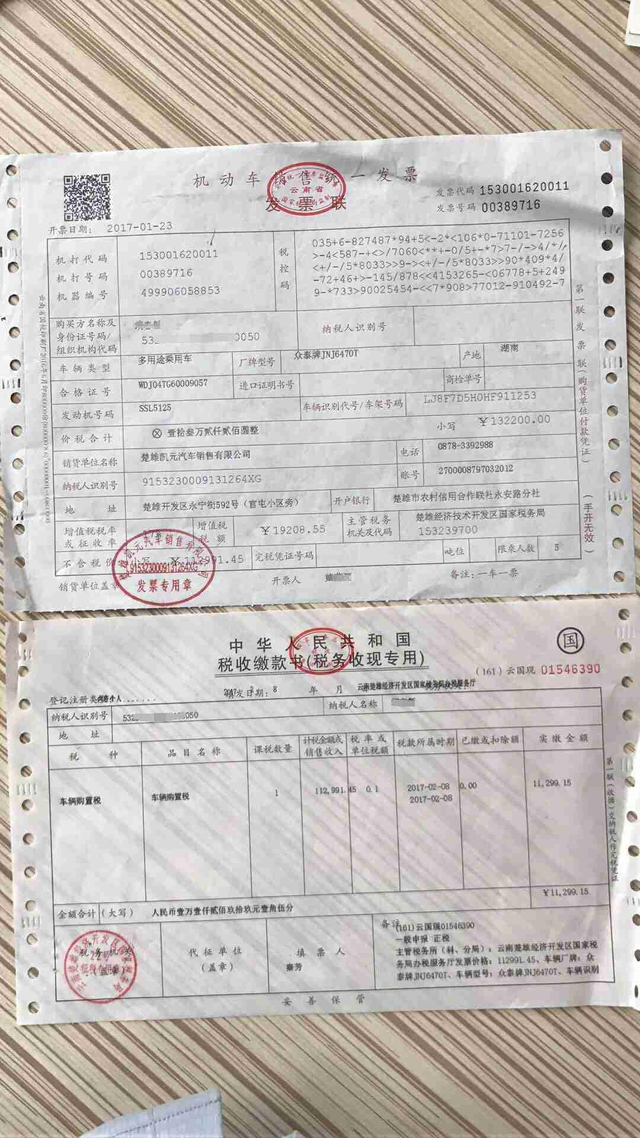 机动车销售统一发票
发票联
发票代码 153001620011
发票号码 00389716
开票日期: 2017-01-23
机打代码 153001620011
机打号码 00389716
机器编号 499906058853
税控码
035+6-827487*94+5<-2*<106*0-71101-7256
购买方名称及身份证号码/组织机构代码
532 0050
纳税人识别号
车辆类型 多用途乘用车 厂牌型号 众泰牌JNJ6470T 产地 湖南
合格证号 WDJ04TG60009057 进口证明书号 商检单号
发动机号码 SSL5125 车辆识别代号/车架号码 LJ8F7D5H0HF911253
价税合计 ⊗ 壹拾叁万贰仟贰佰圆整 小写 ¥132200.00
销货单位名称 楚雄凯元汽车销售有限公司 电话 0878-3392988
纳税人识别号 9153230009131264XG 账号 2700008797032012
地址 楚雄开发区永宁街592号（官屯小区旁） 开户银行 楚雄市农村信用合作联社永安路分社
增值税税率或征收率 增值税税额 ¥19208.55 主管税务机关及代码 楚雄经济技术开发区国家税务局 153239700
不含税价 完税凭证号码 吨位 限乘人数 5
销货单位盖章 开票人 备注:一车一票
9153230009131264XG
发票专用章
第一联 发票联（购货单位付款凭证）
（手开无效）
中华人民共和国
税收缴款书(税务收现专用)
国
(161) 云国现 01546390
登记注册类型
填发日期: 8 年 月
云南楚雄经济开发区国家税务局办税服务厅
纳税人识别号 纳税人名称
地址
税种 品目名称 课税数量 计税金额或销售收入 税率或单位税额 税款所属时期 已缴或扣除额 实缴金额
车辆购置税 车辆购置税 1 112,991.45 0.1 2017-02-08 2017-02-08 0.00 11,299.15
¥11,299.15
金额合计 （大写） 人民币壹万壹仟贰佰玖拾玖元壹角伍分
税务机关
（盖章）
代征单位
（盖章）
填票人
秦芳
备注
(161)云国现01546390
一般申报 正税
主管税务所（科、分局）：云南楚雄经济开发区国家税
务局办税服务厅发票价格：112991.45，车辆厂牌：众
泰牌JNJ6470T，车辆型号：众泰牌JNJ6470T，车辆识别
第一联（收据）交纳税人作完税凭证
妥善保管